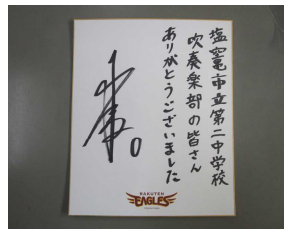 塩竈市立第二中学校
吹奏楽部の皆さん
ありがとうございました
0
RAKUTEN
EAGLES